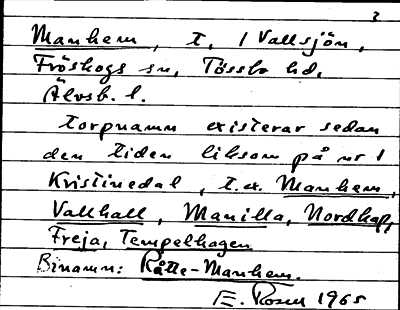 2
Manhem, t, 1 Vallsjön,
Fröskogs sn, Tössbo hd,
Älvsb. l.
torpnamn existerar sedan
den tiden liksom på nr 1
Kristinedal, t.ex. Manhem,
Vallhall, Manilla, Nordkap,
Freja, Tempelhagen
Binamn: Råtte-Manhem.
E. Rosen 1965